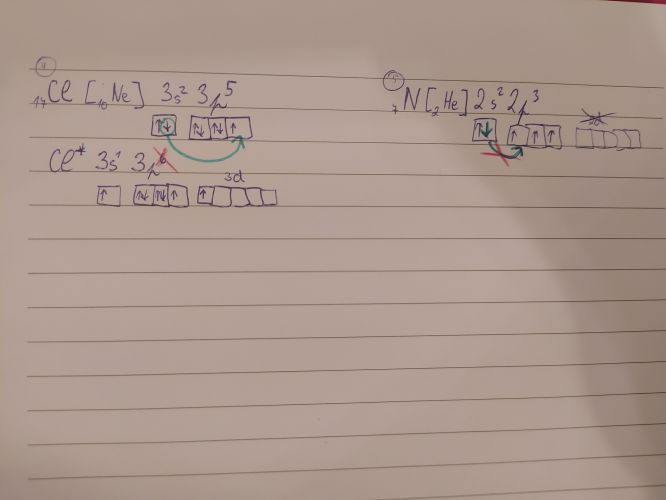 4
17Cl [10Ne] 3s² 3p⁵
↑↓ ↑↓ ↑↓ ↑
Cl* 3s¹ 3p⁶
3d
↑ ↑↓ ↑↓ ↑ ↑
7N [2He] 2s² 2p³
↑↓ ↑ ↑ ↑